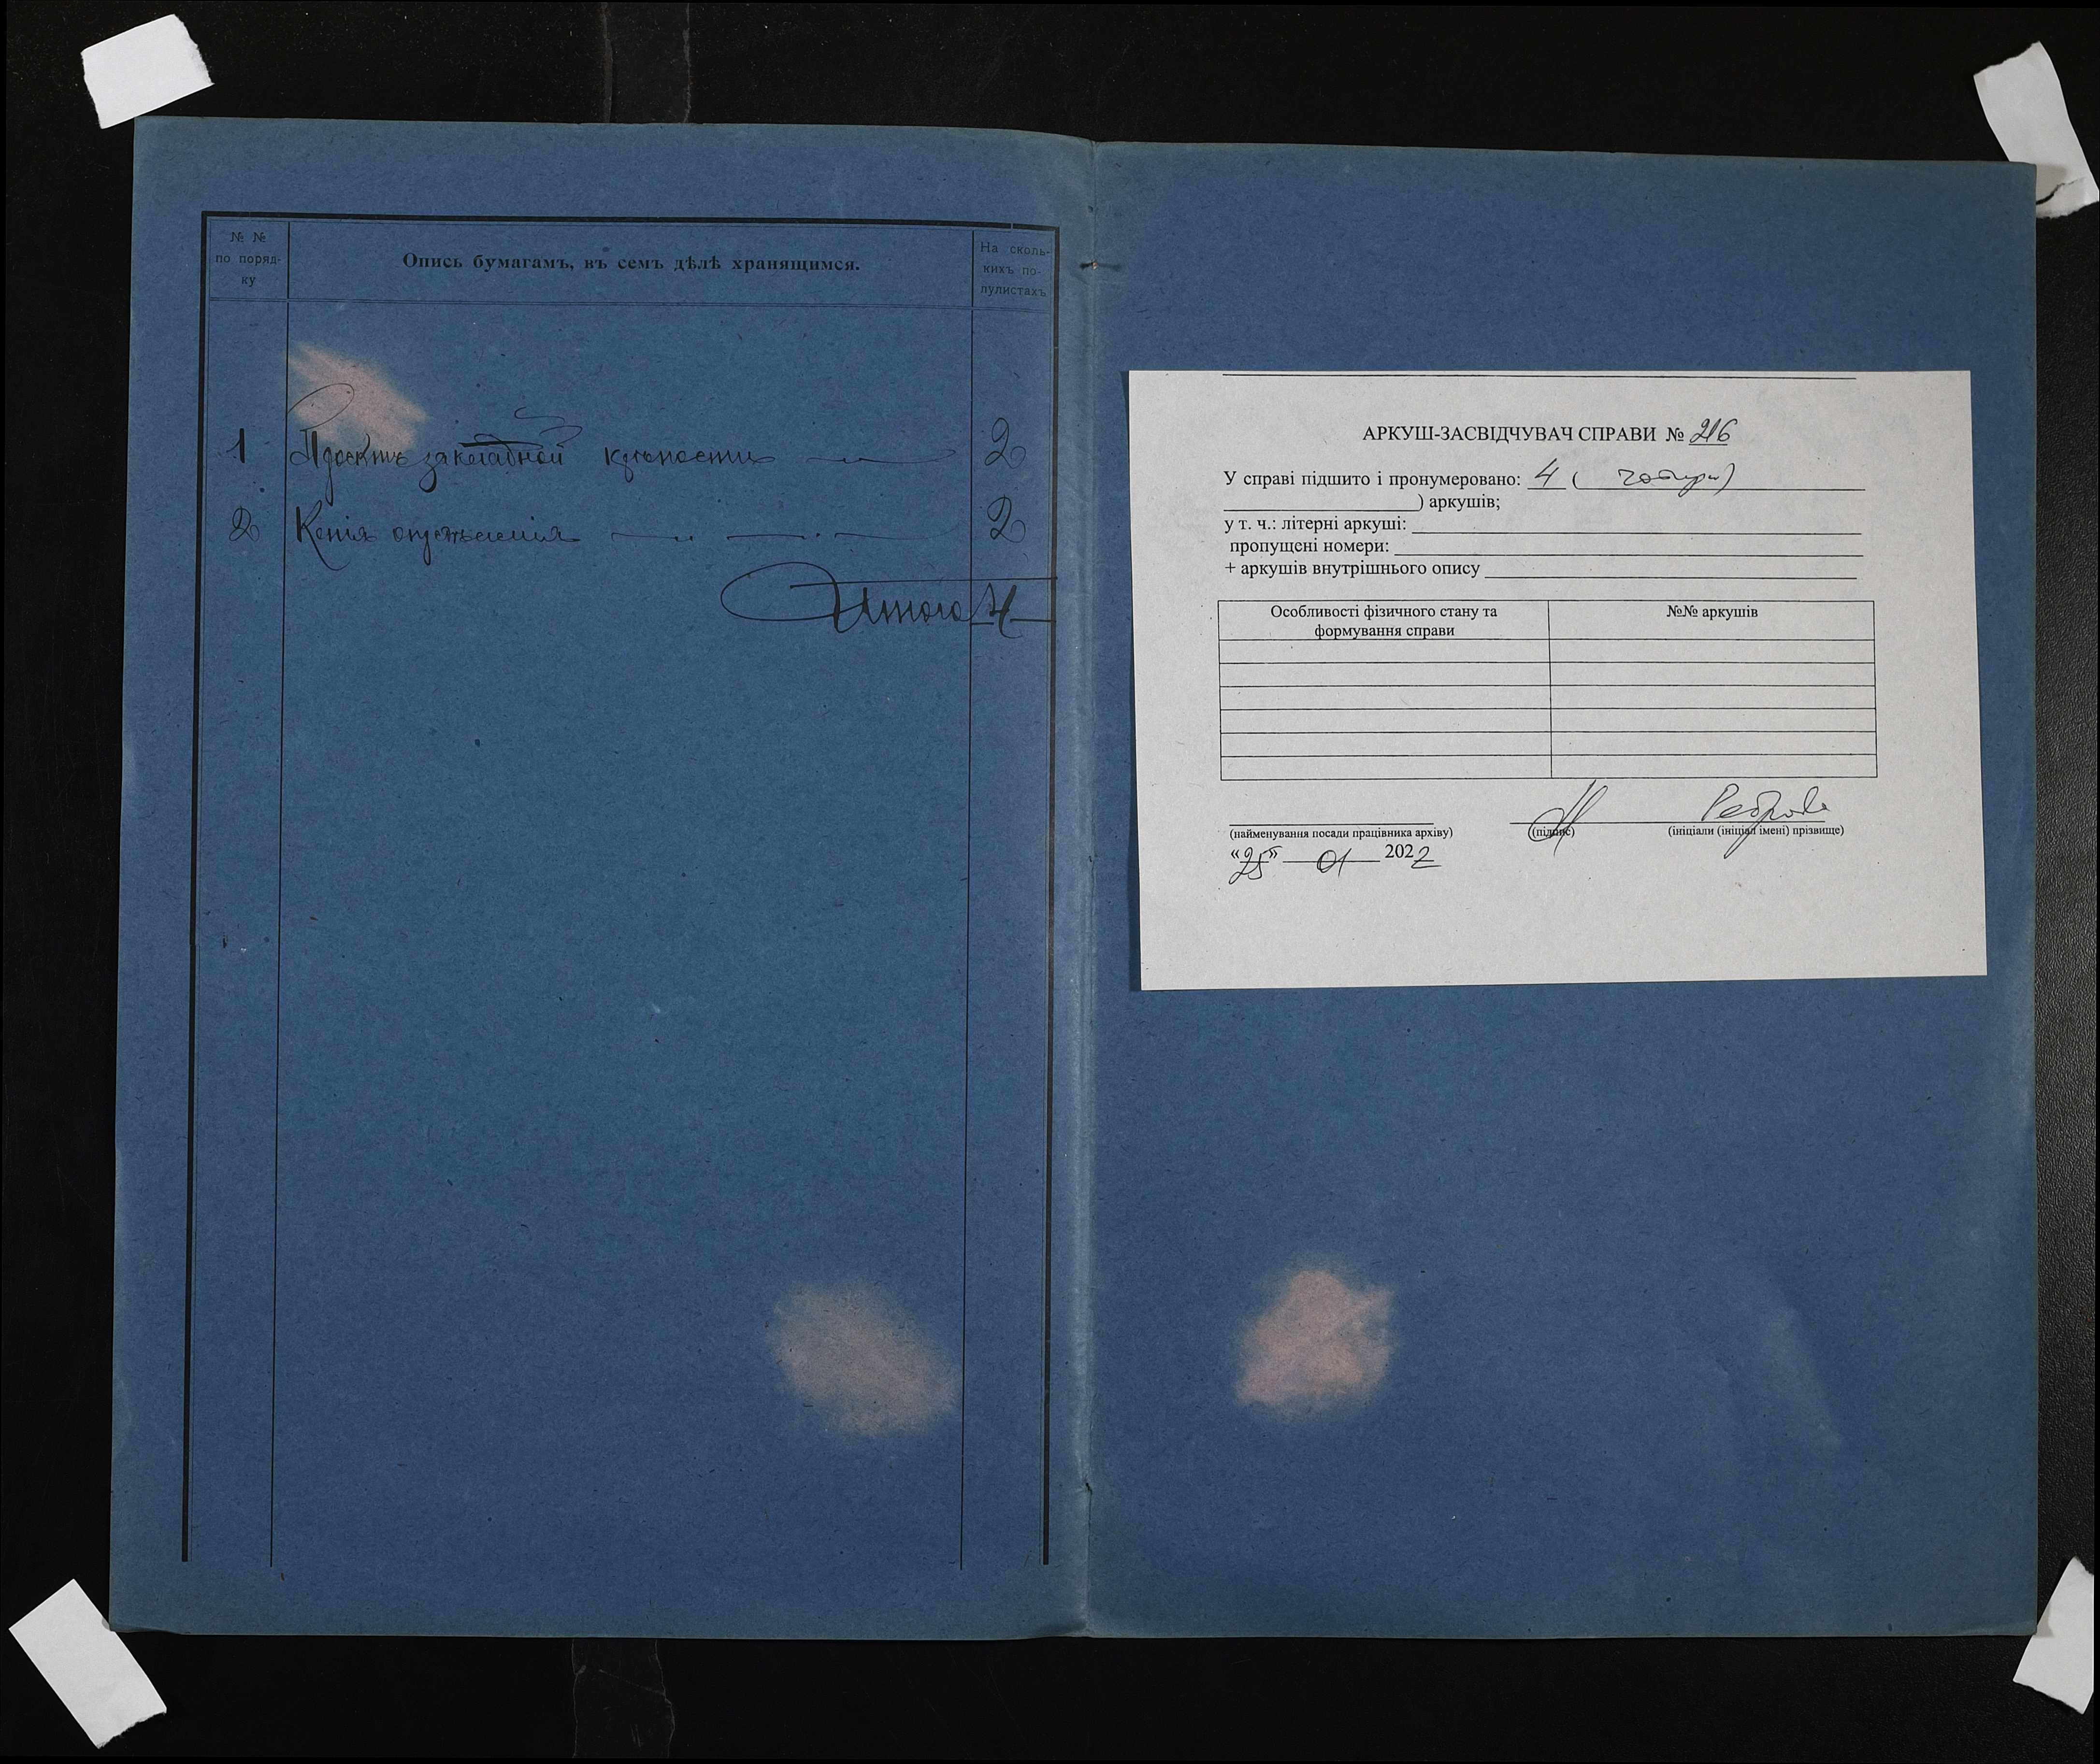 № №
по поряд-
ку
Опись бумагамъ, въ семъ дѣлѣ хранящимся.
На сколь-
кихъ по-
лулистахъ
1 Проектъ закладной крѣпости 2
2 Копія опредѣленія 2
Итого 4
АРКУШ-ЗАСВІДЧУВАЧ СПРАВИ № 216
У справі підшито і пронумеровано: 4 ( чотири)
) аркушів;
у т. ч.: літерні аркуші:
пропущені номери:
+ аркушів внутрішнього опису
Особливості фізичного стану та
формування справи
№№ аркушів
(найменування посади працівника архіву) (підпис) (ініціали (ініціал імені) прізвище)
«25» 01 2022